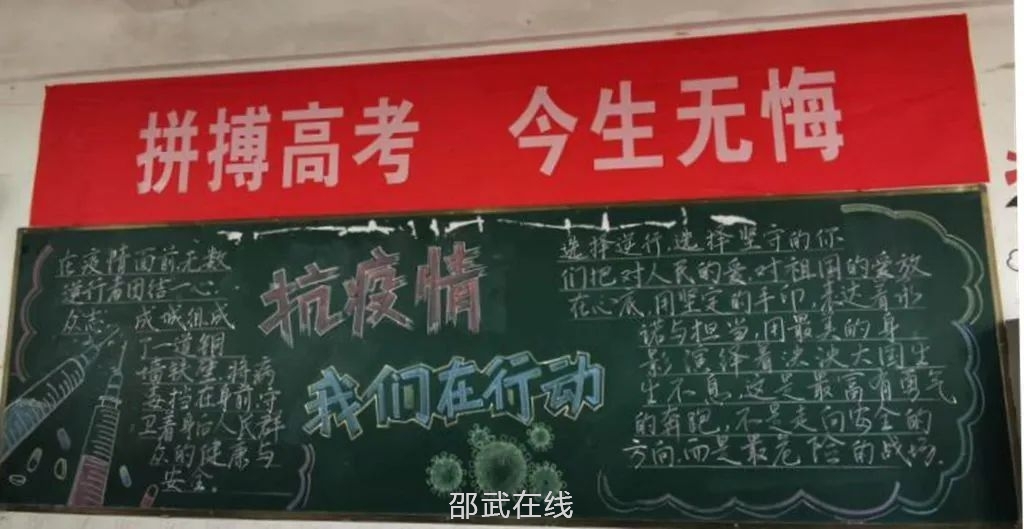 拼搏高考 今生无悔
在疫情面前无数
逆行者团结一心
众志 成城组成
了一道铜
墙铁壁,将病
毒挡在身前,守
卫着身后人民群
众的健康与
安全。
抗疫情
我们在行动
选择逆行,选择坚守的你
们把对人民的爱对祖国的爱放
在心底,用坚定的手印,表达着承
诺与担当,用最美的身
影,演绎着泱泱大国生
生不息,这是最富有勇气
的奔跑,不是走向安全的
方向,而是最危险的战场.
邵武在线